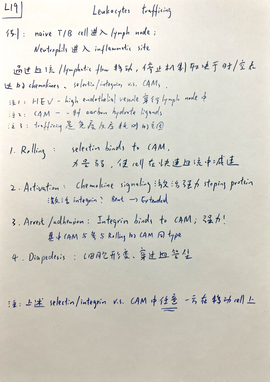 L19
Leukocytes traffising
例: naive T/B cell 进入 lymph node;
Neutrophils 进入 inflammatic site
通过血流/lymphatic flow 移动, 停止机制取决于时/空表
达的 chemokines、selectin/integrin v.s. CAMs
注1: HEV - high endothelial venule 穿行 lymph node 中
注2: CAM -- 一种 carbon hydrate ligands
注3: traffising 是免疫反应
1. Rolling: selectin binds to CAM,
力量弱, 使 cell 在快速血流中减速
2. Activation: Chemokine signaling 激活强力 stoping protein
激活 integrin: Bent → Extended
3. Arrest/adhesion: Integrin binds to CAM; 强力!
其中 CAM 与 Rolling 的 CAM 同 type
4. Diapedesis: 细胞形变、穿过血管壁
注: 上述 selectin/integrin v.s. CAM 中任意一方在移动 cell 上